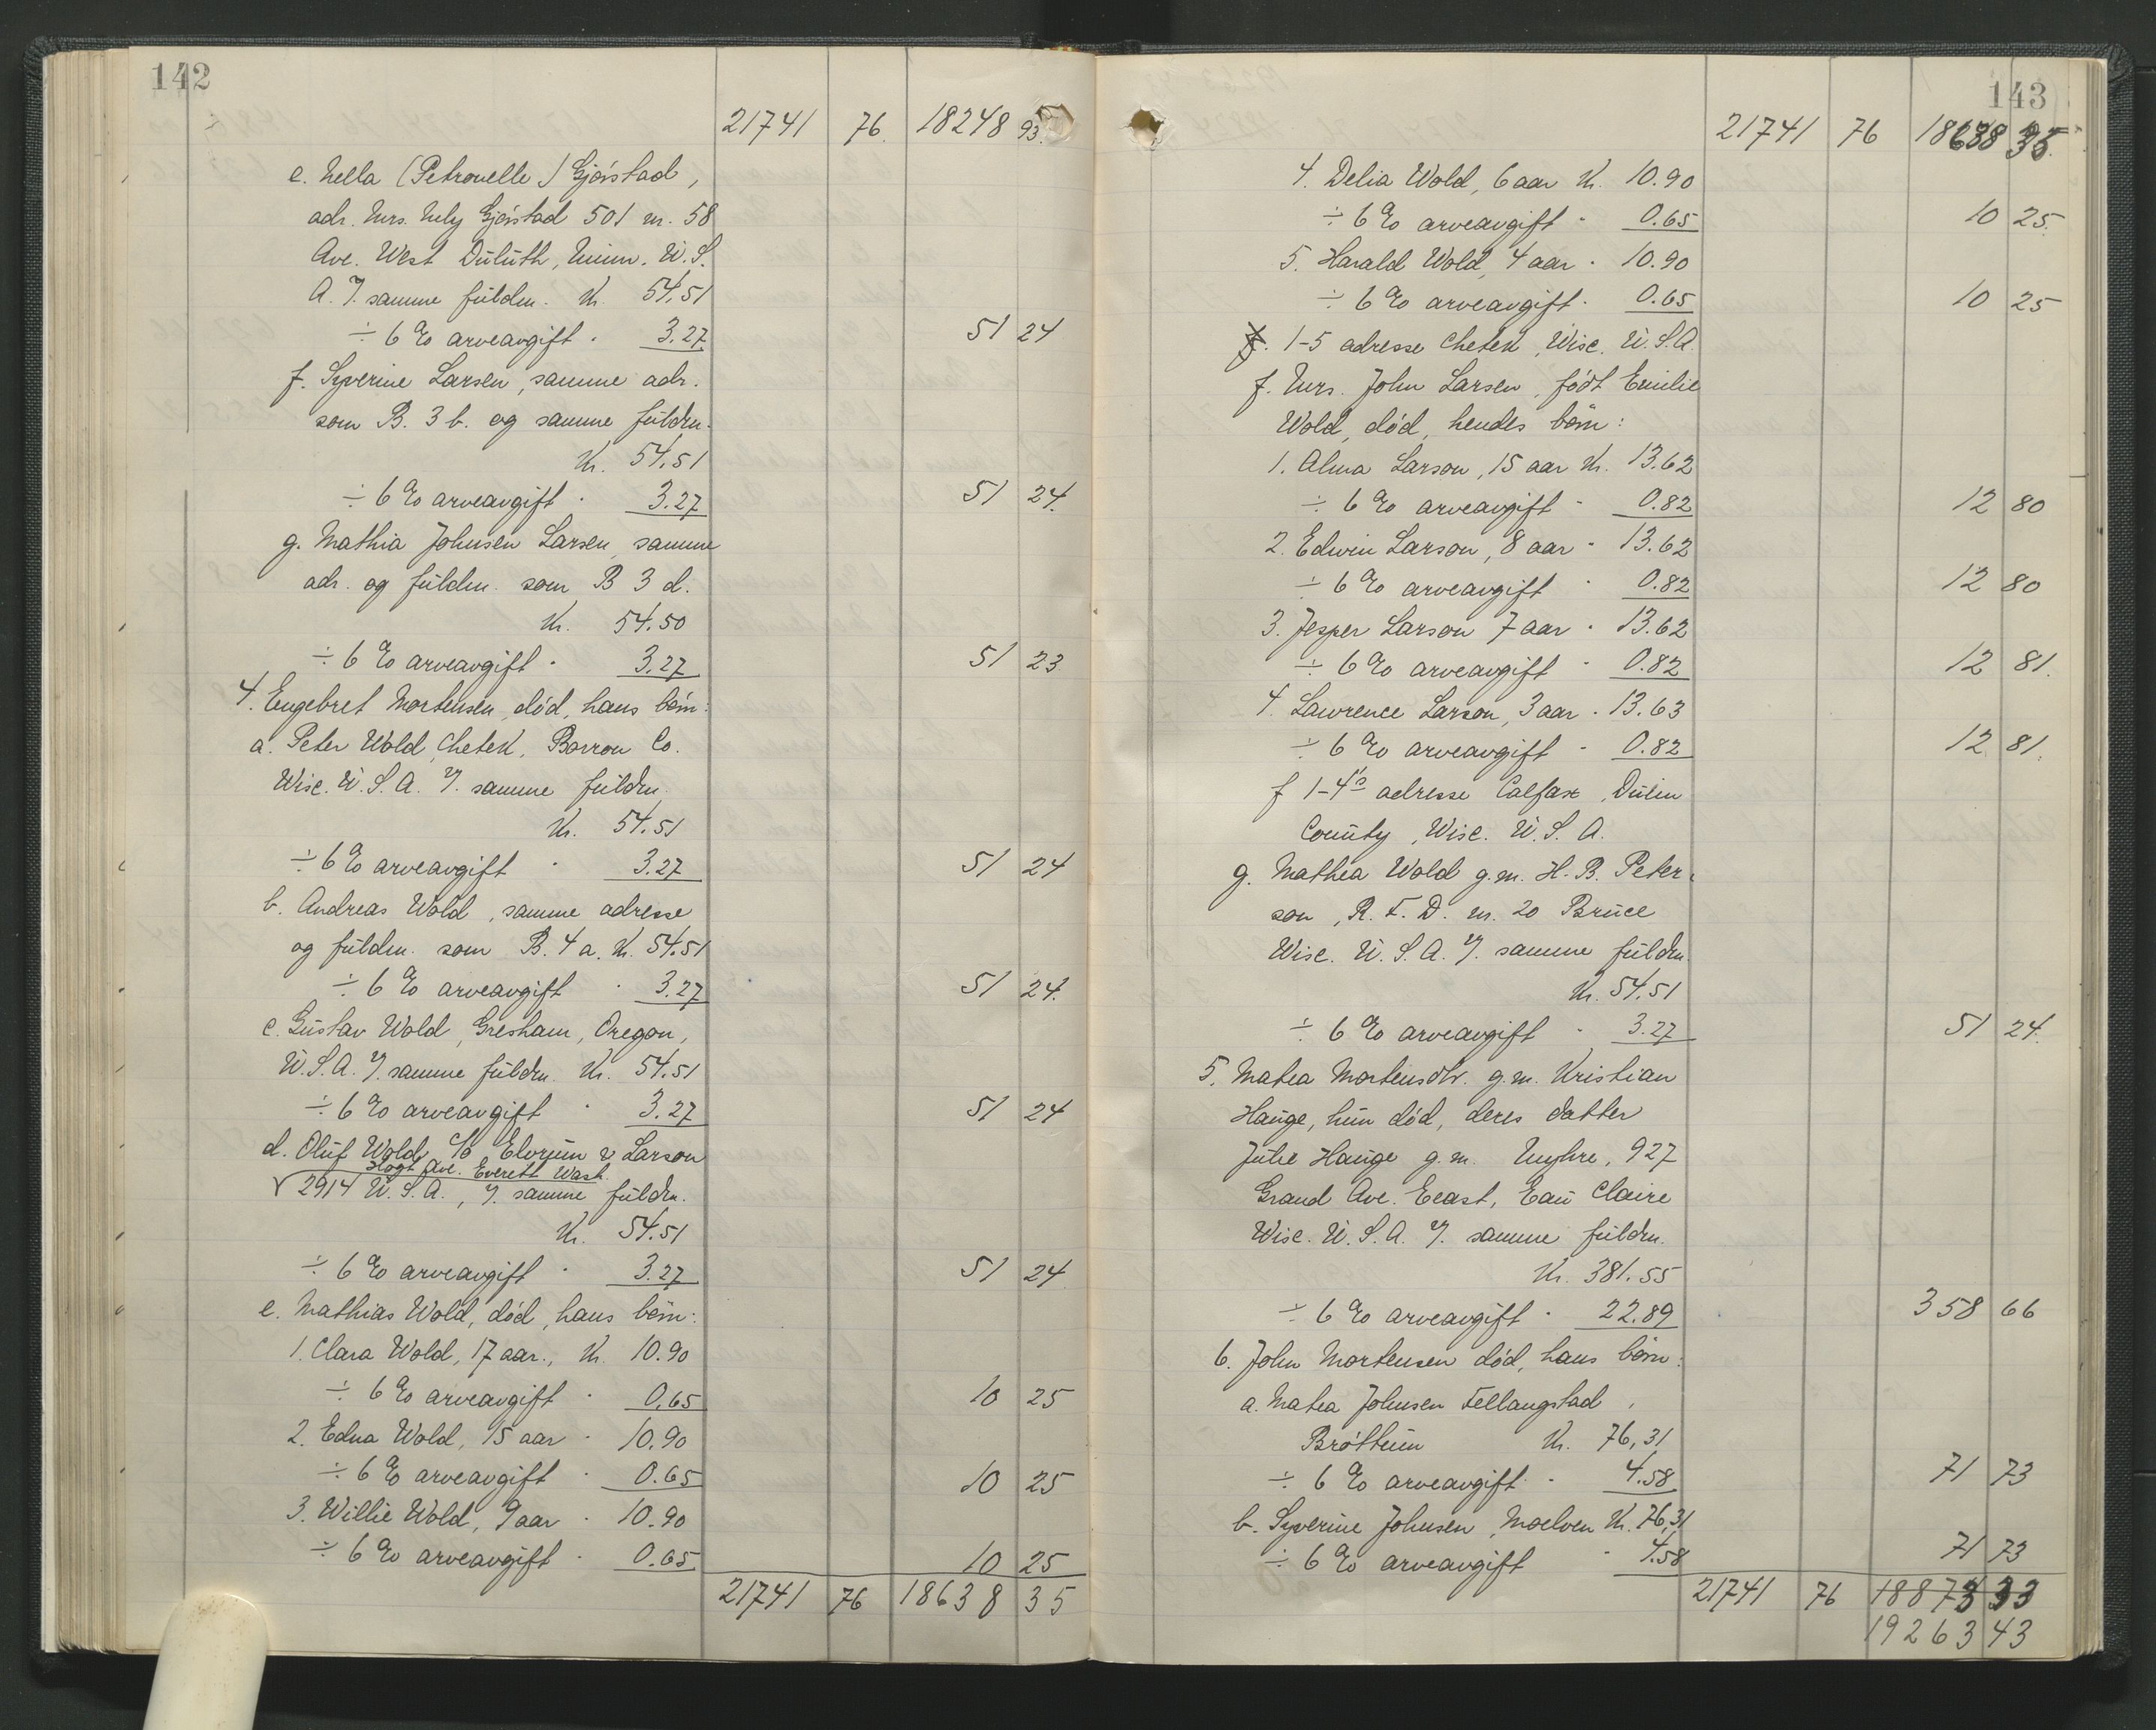 142
21741 76. 18248 93.
e. Nella (Petronelle) Gjørstad,
adr. Mrs. Nely Gjørstad 501 nr. 58
Ave. West Duluth, Minn. U.S.
A. I. samme fuldm. Kr. 54.51
÷ 6 % arveavgift · 3.27 51 24
f. Syverine Larsen, samme adr.
som B. 3 b. og samme fuldm.
Kr. 54.51
÷ 6 % arveavgift · 3.27 51 24.
g. Mathia Johnsen Larsen, samme
adr. og fuldm. som B 3 d.
Kr. 54.50
÷ 6 % arveavgift · 3.27 51 23
4. Engebret Mortensen, død, hans børn:
a. Peter Wold, Chetek, Barron Co.
Wisc. U.S.A. I. samme fuldm.
Kr. 54.51
÷ 6 % arveavgift · 3.27 51 24
b. Andreas Wold, samme adresse
og fuldm. som B. 4 a. Kr. 54.51
÷ 6 % arveavgift · 3.27 51 24.
c. Gustav Wold, Gresham, Oregon,
U.S.A. I. samme fuldm. Kr. 54.51
÷ 6 % arveavgift · 3.27 51 24
d. Oluf Wold, c/o & Larson
Hogt Ave. Everett Wash.
√ 2914 U.S.A., I. samme fuldm.
Kr. 54.51
÷ 6 % arveavgift · 3.27 51 24
e. Mathias Wold, død, hans børn:
1. Clara Wold, 17 aar., Kr. 10.90
÷ 6 % arveavgift · 0.65 10 25
2. Edna Wold, 15 aar · 10.90
÷ 6 % arveavgift · 0.65 10 25
3. Willie Wold, 9 aar · 10.90
÷ 6 % arveavgift · 0.65 10 25
21741 76 18638 35
143
21741 76 18638 35.
4. Delia Wold, 6 aar Kr. 10.90
÷ 6 % arveavgift · 0.65 10 25.
5. Harald Wold, 4 aar · 10.90
÷ 6 % arveavgift · 0.65 10 25
1-5 adresse Chetek, Wisc. U.S.A.
f. Mrs. John Larsen, født Emilie
Wold, død, hendes børn:
1. Alma Larson, 15 aar Kr. 13.62
÷ 6 % arveavgift · 0.82 12 80
2. Edwin Larson, 8 aar · 13.62
÷ 6 % arveavgift · 0.82 12 80
3. Jesper Larson 7 aar · 13.62
÷ 6 % arveavgift · 0.82 12 81.
4. Lawrence Larson, 3 aar · 13.63
÷ 6 % arveavgift · 0.82 12 81.
f 1-4's adresse Calfax, Dunn
County, Wisc. U.S.A.
g. Mathea Wold g.m. H.B. Peter-
son, R.F.D. nr. 20 Bruce
Wisc. U.S.A. I. samme fuldm.
Kr. 54.51
÷ 6 % arveavgift · 3.27 51 24.
5. Matea Mortensdtr. g.m. Kristian
Hauge, hun død, deres datter
Julie Hauge g.m. Myhre, 927
Grand Ave. Eeast, Eau Claire
Wisc. U.S.A. I. samme fuldm.
Kr. 381.55
÷ 6 % arveavgift · 22.89 358 66
6. John Mortensen død, hans børn:
a. Matea Johnsen Fellangstad,
Brøttum Kr. 76,31
÷ 6 % arveavgift · 4.58 71 73
b. Syverine Johnsen, Moelven Kr. 76,31
÷ 6 % arveavgift · 4.58 71 73
21741 76 18873 33
19263 43